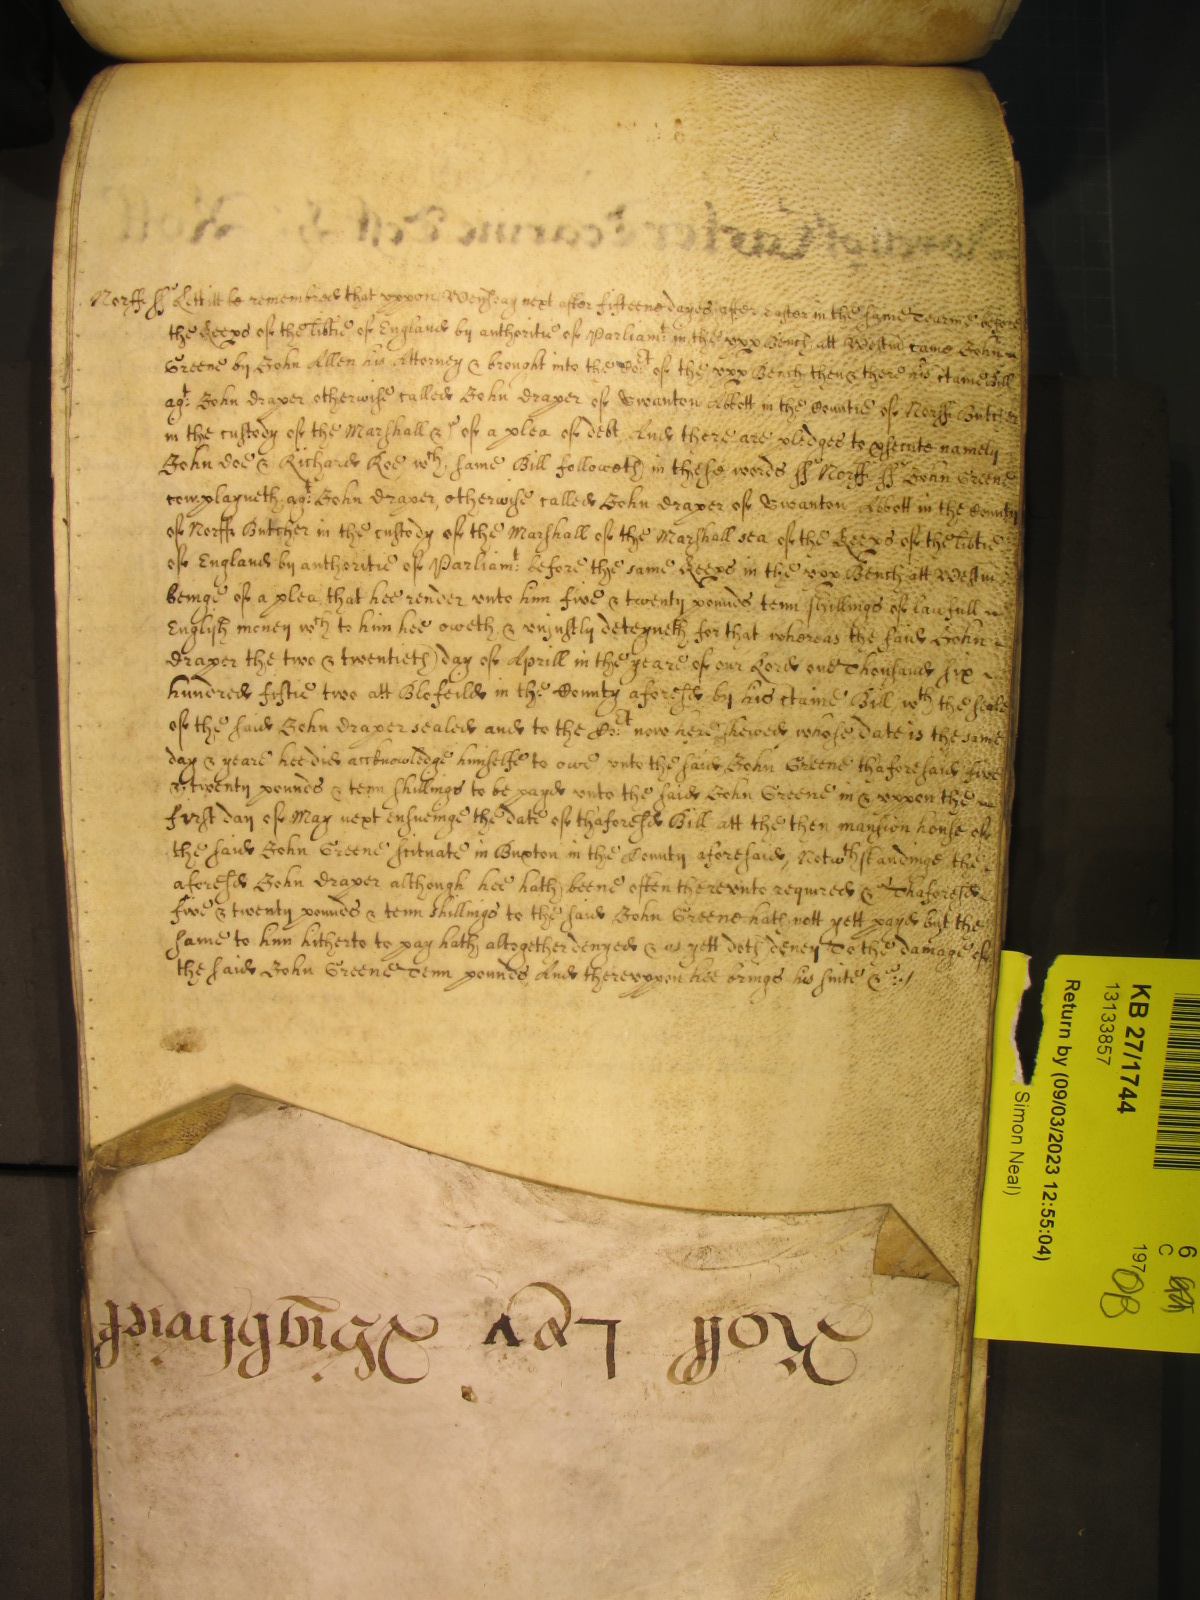 Norff ss Lett it be remembred that uppon Wensday next after fifteene dayes after Easter in the same Tearme before
the Keeps of the libtie of England by authoritie of Parliamt: in the upp Bench att Westm came John
Greene by John Allen his Attorney & brought into the Cort of the upp Bench then & there his ctaine Bill
agt: John draper otherwise called John draper of Swanton Abbott in the Countie of Norff Butcher
in the custody of the Marshall &c of a plea of debt And there are pledges to psecute namely
John doe & Richard Roe wch: same Bill followeth in these words ss Norff ss John Greene
complayneth agt John draper, otherwise called John draper of Swanton Abbott in the County
of Norff Butcher in the custody of the Marshall of the Marshallsea of the Keeps of the libtie
of England by authoritie of Parliamt: before the same Keeps in the upp Bench att Westm
beinge of a plea that hee render unto him five & twenty pounds tenn shillings of lawfull
English money wch to him hee oweth & unjustly deteyneth for that whereas the said John
draper the two & twentieth day of Aprill in the yeare of our Lord one Thousand six
hundred fiftie two att Blofeild in the County aforesd by his ctaine Bill wth the seale
of the said John draper sealed and to the Cort now here shewed whose date is the same
day & yeare hee did acknowledge himselfe to owe unto the said John Greene thaforesaid five
& twenty pounds & tenn shillings to be payd unto the said John Greene in & uppon the
first day of May next ensueinge the date of thaforesd Bill att the then mansion house of
the said John Greene scituate in Buxton in the County aforesaid, Notwthstandinge the
aforesd John draper although hee hath beene often thereunto required &c Thaforesd
five & twenty pounds & tenn shillings to the said John Greene hath nott yett payd but the
same to him hitherto to pay hath altogether denyed & as yett doth deney To the damage of
the said John Greene Tenn pounds And thereuppon hee brings his suite &c
Roll
KB 27/1744
13133857
Return by (09/03/2023 12:55:04)
Simon Neal)
6
C
197